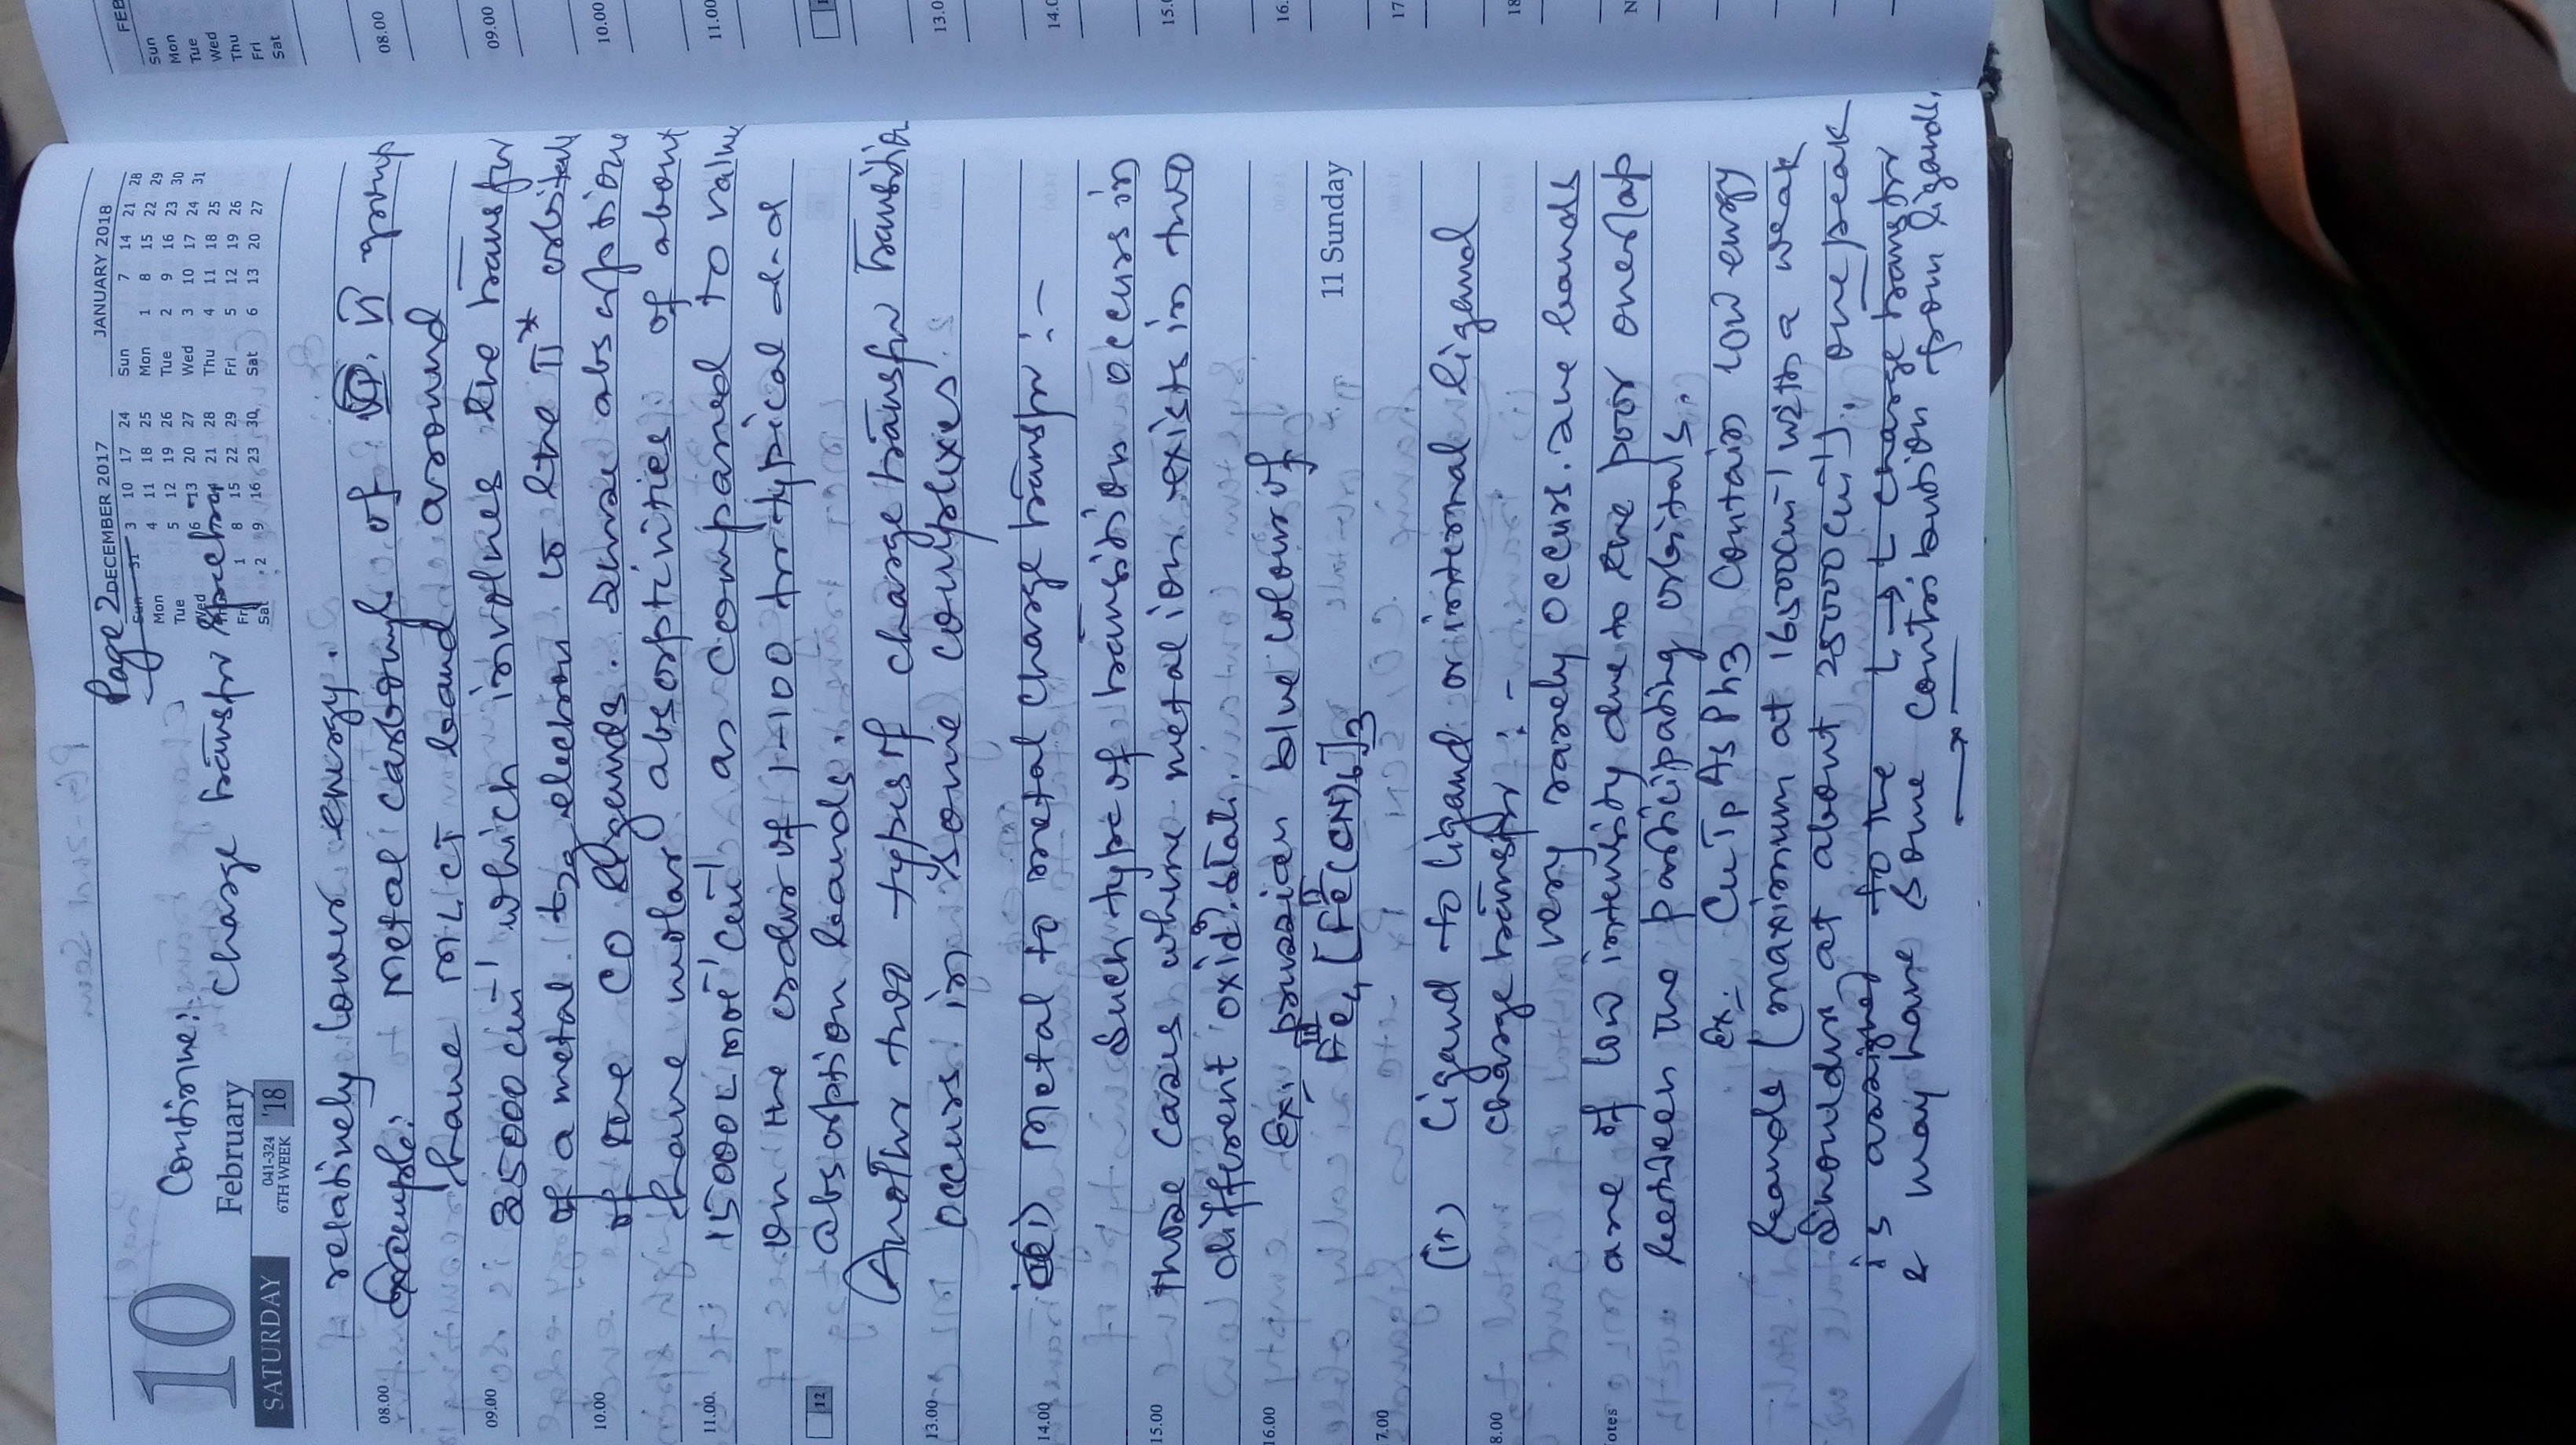 Page 2
Continue:
Charge transfer Spectra
10
February
SATURDAY
041-324
6TH WEEK
'18
DECEMBER 2017
Sun 31 3 10 17 24
Mon 4 11 18 25
Tue 5 12 19 26
Wed 6 13 20 27
Thu 7 14 21 28
Fri 1 8 15 22 29
Sat 2 9 16 23 30
JANUARY 2018
Sun 7 14 21 28
Mon 1 8 15 22 29
Tue 2 9 16 23 30
Wed 3 10 17 24 31
Thu 4 11 18 25
Fri 5 12 19 26
Sat 6 13 20 27
relatively lower energy.
Example: Metal carbonyl of VI group
have MLCT band around
35000 cm⁻¹ which involves the transfer
of a metal t2g electron to the π* orbitals
of the CO ligands. These absorptions
have molar absorptivities of about
15000 L mol⁻¹ cm⁻¹ as compared to value
on the order of 1-100 for typical d-d
absorption bands.
Another two types of charge transfer transition
occurs in some complexes.
(i) Metal to metal charge transfer :-
Such type of transition occurs in
those cases where metal ion exists in two
different oxid. state.
Ex. prussian blue colour of
Fe₄ᴵᴵᴵ [Feᴵᴵ(CN)₆]₃
11 Sunday
(ii) Ligand to ligand or internal ligand
charge transfer :-
very rarely occurs. are bands
are of low intensity due to the poor overlap
between the participating orbitals.
Ex:- CuTpAsPh3 contain low energy
bands (maximum at 16500 cm⁻¹ with a weak
shoulder at about 25000 cm⁻¹), one peak
is assigned to the L→L charge transfer
& may have some contribution from ligands.
08.00
09.00
10.00
11.00
12
13.00
14.00
15.00
16.00
7.00
8.00
otes
FEB
Sun
Mon
Tue
Wed
Thu
Fri
Sat
08.00
09.00
10.00
11.00
13.0
14.0
15.0
16.
17
18
N